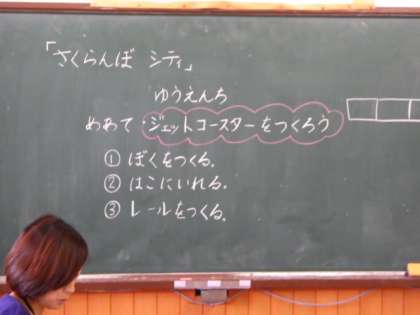 「さくらんぼ シティ」
ゆうえんち
めあて・ジェットコースターをつくろう
① ぼくをつくる。
② はこにいれる。
③ レールをつくる。